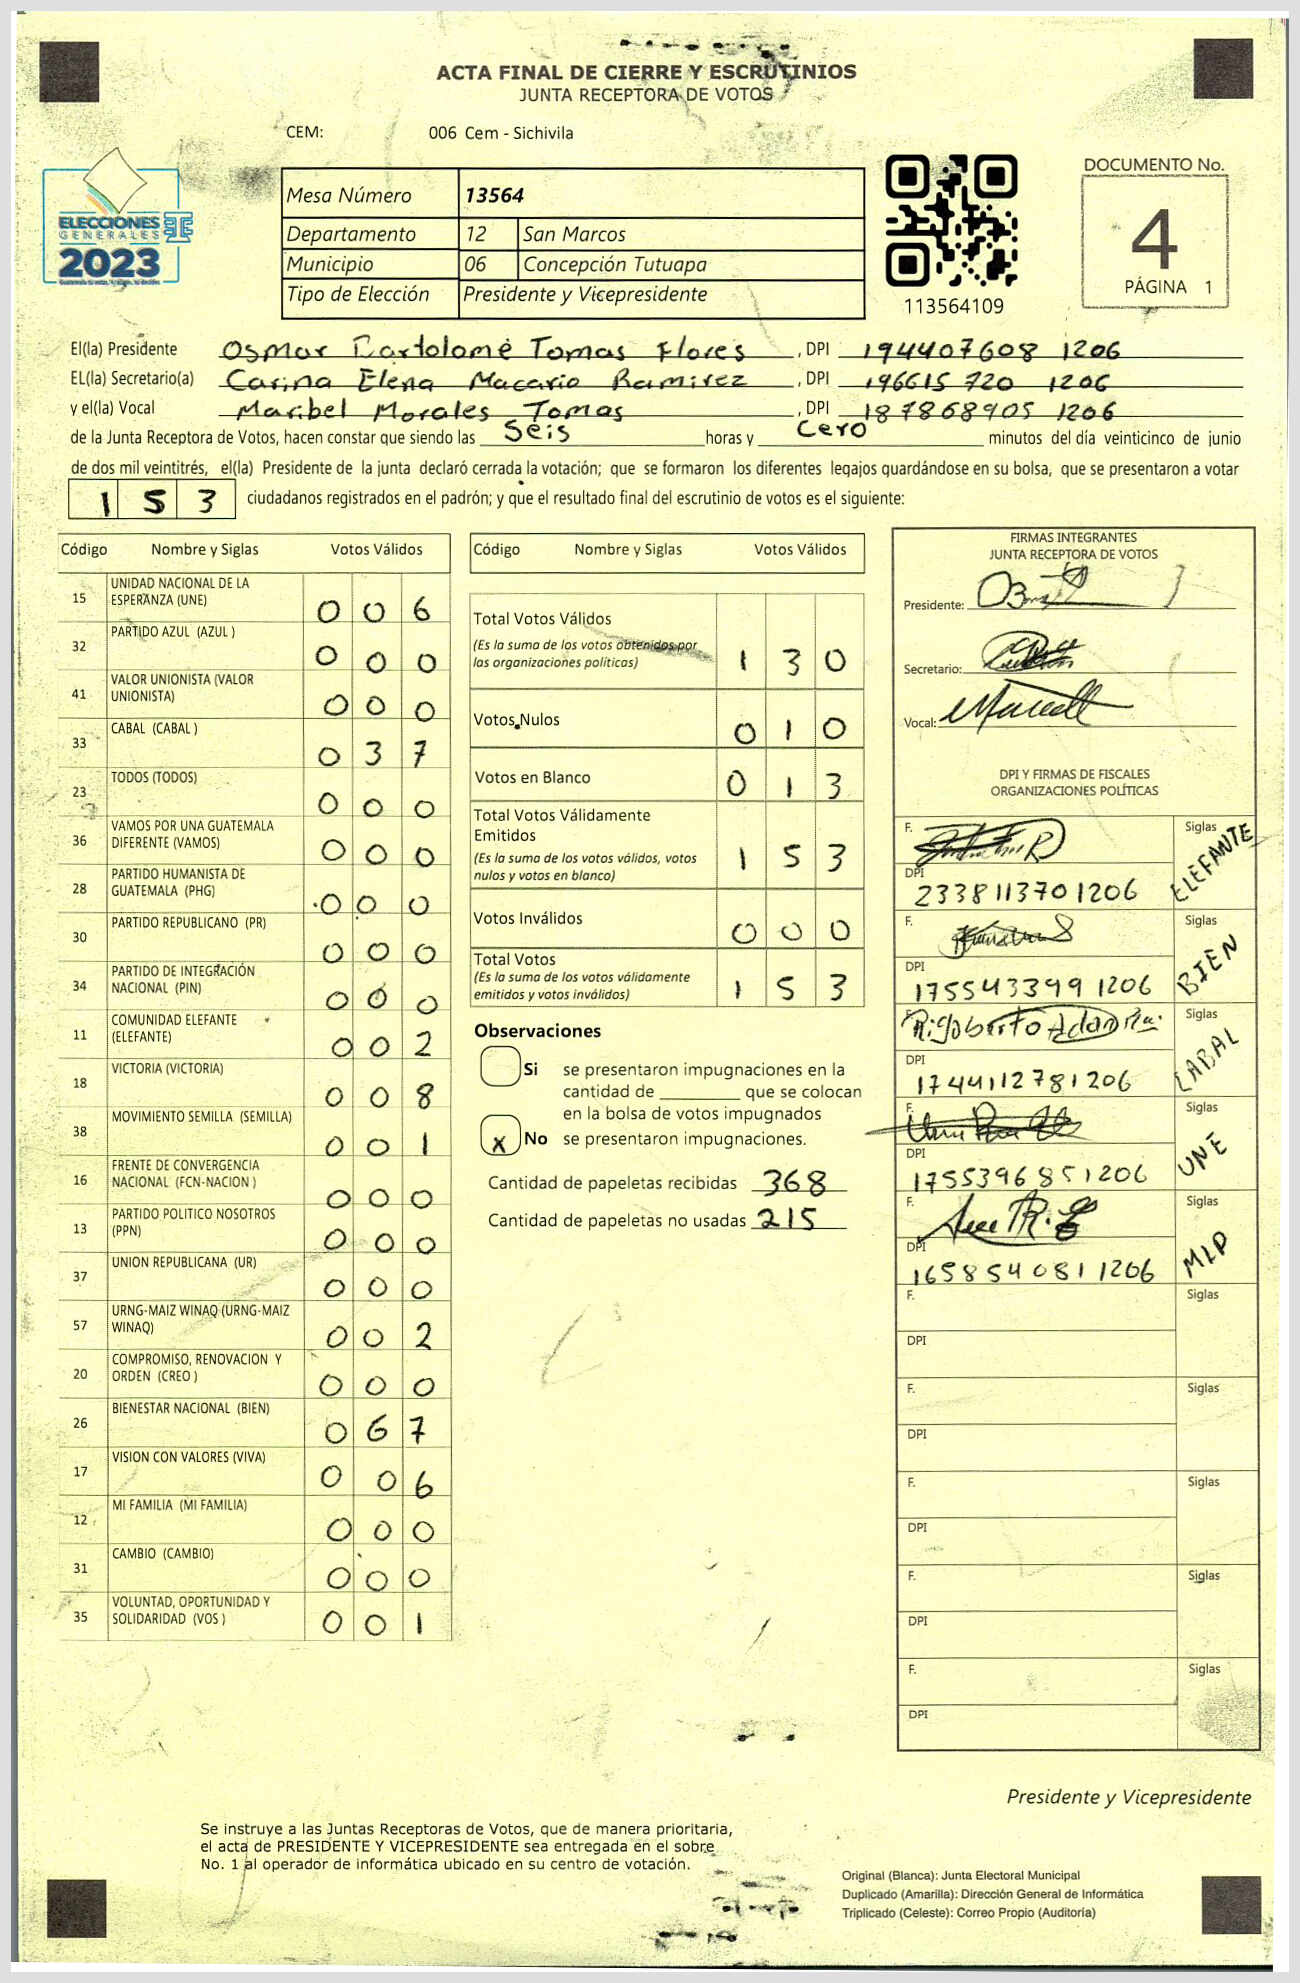 ACTA FINAL DE CIERRE Y ESCRUTINIOS
JUNTA RECEPTORA DE VOTOS
CEM: 006 Cem - Sichivila
DOCUMENTO No.
4
PÁGINA 1
ELECCIONES
GENERALES
2023
Mesa Número 13564
Departamento 12 San Marcos
Municipio 06 Concepción Tutuapa
Tipo de Elección Presidente y Vicepresidente
113564109
El(la) Presidente Osmar Bartolomé Tomas Flores , DPI 194407608 1206
EL(la) Secretario(a) Carina Elena Macario Ramirez , DPI 196615 720 1206
y el(la) Vocal Maribel Morales Tomas , DPI 187868905 1206
de la Junta Receptora de Votos, hacen constar que siendo las Seis horas y Cero minutos del día veinticinco de junio
de dos mil veintitrés, el(la) Presidente de la junta declaró cerrada la votación; que se formaron los diferentes legajos guardándose en su bolsa, que se presentaron a votar
1 5 3 ciudadanos registrados en el padrón; y que el resultado final del escrutinio de votos es el siguiente:
Código Nombre y Siglas Votos Válidos
15 UNIDAD NACIONAL DE LA
ESPERANZA (UNE) 0 0 6
32 PARTIDO AZUL (AZUL ) 0 0 0
41 VALOR UNIONISTA (VALOR
UNIONISTA) 0 0 0
33 CABAL (CABAL ) 0 3 7
23 TODOS (TODOS) 0 0 0
36 VAMOS POR UNA GUATEMALA
DIFERENTE (VAMOS) 0 0 0
28 PARTIDO HUMANISTA DE
GUATEMALA (PHG) 0 0 0
30 PARTIDO REPUBLICANO (PR) 0 0 0
34 PARTIDO DE INTEGRACIÓN
NACIONAL (PIN) 0 0 0
11 COMUNIDAD ELEFANTE
(ELEFANTE) 0 0 2
18 VICTORIA (VICTORIA) 0 0 8
38 MOVIMIENTO SEMILLA (SEMILLA) 0 0 1
16 FRENTE DE CONVERGENCIA
NACIONAL (FCN-NACION ) 0 0 0
13 PARTIDO POLITICO NOSOTROS
(PPN) 0 0 0
37 UNION REPUBLICANA (UR) 0 0 0
57 URNG-MAIZ WINAQ (URNG-MAIZ
WINAQ) 0 0 2
20 COMPROMISO, RENOVACION Y
ORDEN (CREO ) 0 0 0
26 BIENESTAR NACIONAL (BIEN) 0 6 7
17 VISION CON VALORES (VIVA) 0 0 6
12 MI FAMILIA (MI FAMILIA) 0 0 0
31 CAMBIO (CAMBIO) 0 0 0
35 VOLUNTAD, OPORTUNIDAD Y
SOLIDARIDAD (VOS ) 0 0 1
Código Nombre y Siglas Votos Válidos
Total Votos Válidos
(Es la suma de los votos obtenidos por
las organizaciones políticas) 1 3 0
Votos Nulos 0 1 0
Votos en Blanco 0 1 3
Total Votos Válidamente
Emitidos
(Es la suma de los votos válidos, votos
nulos y votos en blanco) 1 5 3
Votos Inválidos 0 0 0
Total Votos
(Es la suma de los votos válidamente
emitidos y votos inválidos) 1 5 3
Observaciones
Si se presentaron impugnaciones en la
cantidad de ________ que se colocan
en la bolsa de votos impugnados
x No se presentaron impugnaciones.
Cantidad de papeletas recibidas 368
Cantidad de papeletas no usadas 215
FIRMAS INTEGRANTES
JUNTA RECEPTORA DE VOTOS
Presidente:
Secretario:
Vocal:
DPI Y FIRMAS DE FISCALES
ORGANIZACIONES POLÍTICAS
F. Siglas ELEFANTE
DPI
2338113701206
F. Siglas BIEN
DPI
175543399 1206
F. Rigoberto Siglas CABAL
DPI
1744112781206
F. Siglas UNE
DPI
1755396851206
F. Siglas MLP
DPI
1658540811206
F. Siglas
DPI
F. Siglas
DPI
F. Siglas
DPI
F. Siglas
DPI
F. Siglas
DPI
Presidente y Vicepresidente
Se instruye a las Juntas Receptoras de Votos, que de manera prioritaria,
el acta de PRESIDENTE Y VICEPRESIDENTE sea entregada en el sobre
No. 1 al operador de informática ubicado en su centro de votación.
Original (Blanca): Junta Electoral Municipal
Duplicado (Amarilla): Dirección General de Informática
Triplicado (Celeste): Correo Propio (Auditoría)